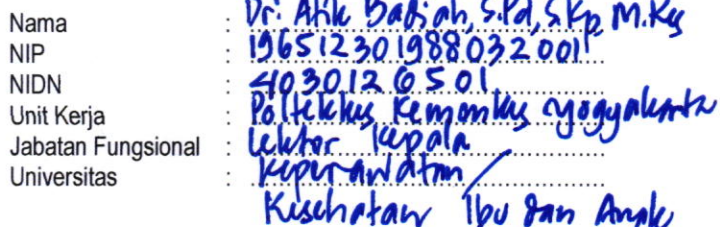 Nama : Dr. Atik Badi'ah, S.Pd, S.Kp, M.Kes
NIP : 196512301988032001
NIDN : 4030126501
Unit Kerja : Poltekkes Kemenkes Yogyakarta
Jabatan Fungsional : Lektor Kepala
Universitas : Keperawatan /
Kesehatan Ibu dan Anak